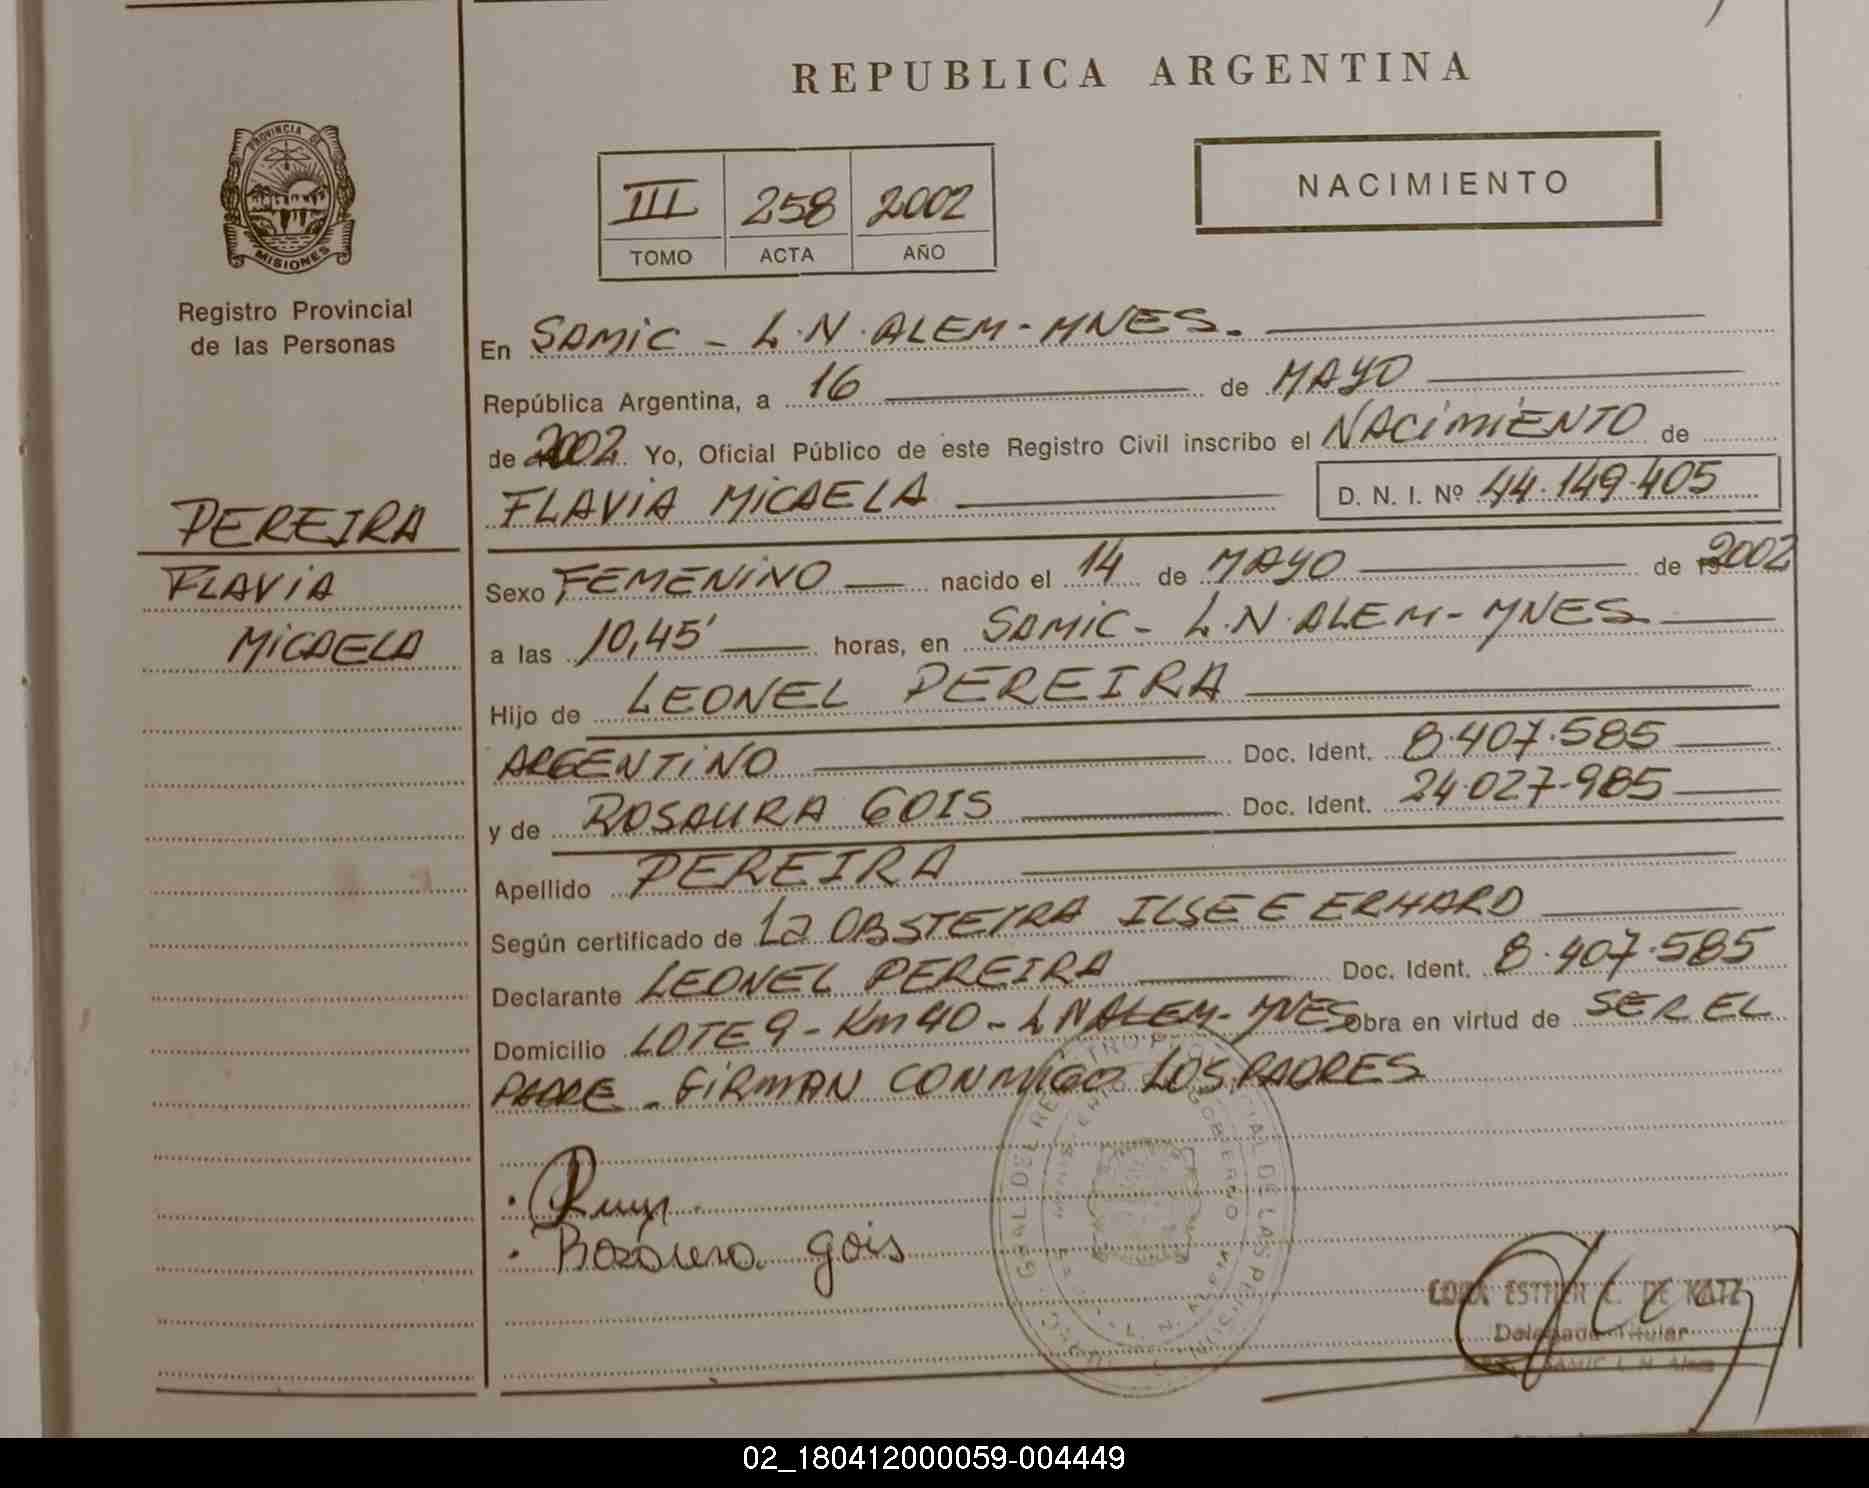 REPUBLICA ARGENTINA
PROVINCIA DE
MISIONES
Registro Provincial
de las Personas
III 258 2002
TOMO ACTA AÑO
NACIMIENTO
PEREIRA
FLAVIA
MICAELA
En SAMIC - L.N.ALEM-MNES.
República Argentina, a 16 de MAYO
de 2002 Yo, Oficial Público de este Registro Civil inscribo el NACIMIENTO de
FLAVIA MICAELA D. N. I. Nº 44.149.405
Sexo FEMENINO nacido el 14 de MAYO de 2002
a las 10,45' horas, en SAMIC - L.N.ALEM-MNES
Hijo de LEONEL PEREIRA
ARGENTINO Doc. Ident. 8.407.585
y de ROSAURA GOIS Doc. Ident. 24.027.985
Apellido PEREIRA
Según certificado de La OBSTETRA ILSE E ERHARD
Declarante LEONEL PEREIRA Doc. Ident. 8.407.585
Domicilio LOTE 9 - Km 40 - L N ALEM - MNES Obra en virtud de SER EL
PADRE - FIRMAN CONMIGO LOS PADRES
Rosaura gois
ESTHER C. DE KATZ
Delegada Titular
SAMIC L. N. Alem
02_180412000059-004449